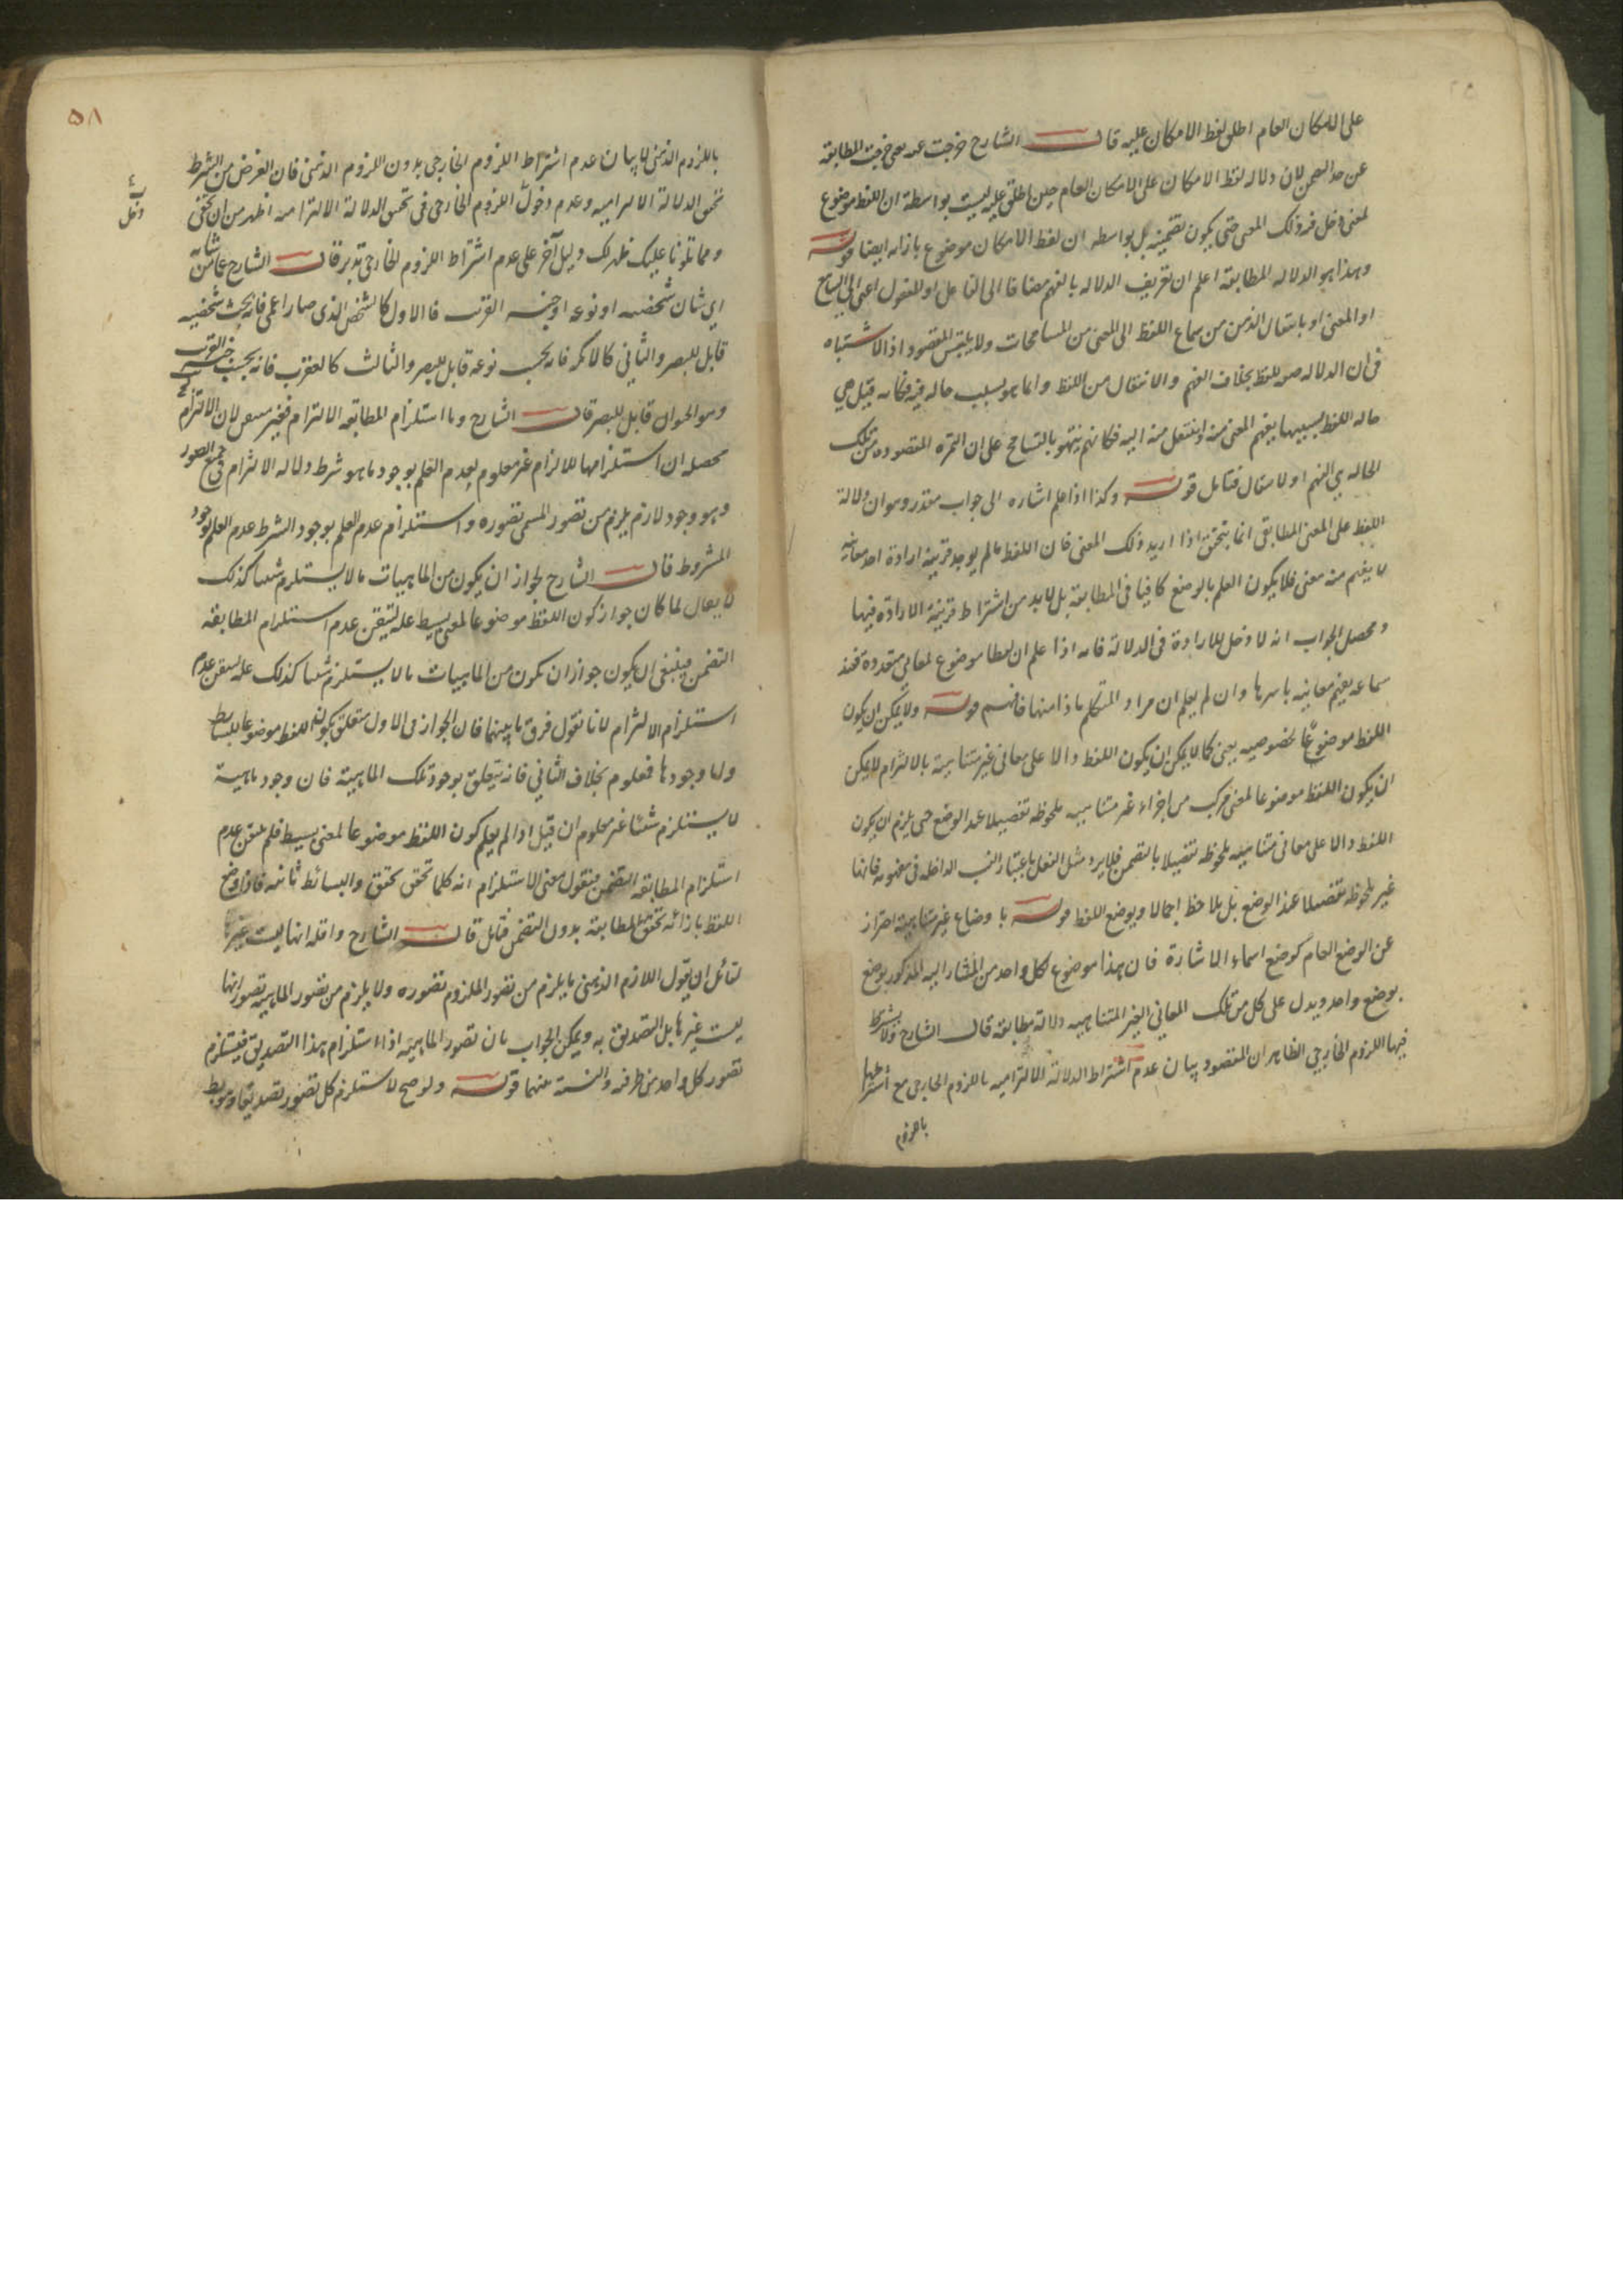 على الامكان العام اطلق لفظ الامكان عليه قال الشارح خرجت عنه يعني خرجت المطابقة
عن حد التضمن لان دلالة لفظ الامكان على الامكان العام حين اطلق عليه ليست بواسطة ان اللفظ موضوع
لمعنى دخل فيه ذلك المعنى حتى يكون تضمنية بل بواسطة ان لفظ الامكان موضوع بازائه ايضا قوله
وهذا هو الدلالة المطابقة اعلم ان تعريف الدلالة بالفهم مضافا الى الفاعل او المفعول اعني السامع
او المعنى او بانتقال الذهن من سماع اللفظ الى المعنى من المسامحات ولا يلتبس المقصود اذ لا اشتباه
في ان الدلالة صفة للفظ بخلاف الفهم والانتقال من اللفظ وانما هو بسبب حالة فيه فكانه قيل هي
حالة اللفظ بسببها يفهم المعنى منه او ينتقل منه اليه فكانهم نبهوا بالتسامح على ان الثمرة المقصودة من تلك
الحالة هي الفهم او الانتقال فتأمل قوله وكذا اذا علم اشارة الى جواب مقدر وهو ان دلالة
اللفظ على المعنى المطابقي انما يتحقق اذا اريد ذلك المعنى فان اللفظ ما لم يوجد قرينة ارادة احد معانيه
لا يفهم منه معنى فلا يكون العلم بالوضع كافيا في المطابقة بل لابد من اشتراط قرينة الارادة فيها
ومحصل الجواب انه لا دخل للارادة في الدلالة فانه اذا علم ان لفظا موضوع لمعاني متعددة فعند
سماعه يفهم معانيه باسرها وان لم يعلم ان مراد المتكلم ماذا منها فافهم قوله ولا يمكن ان يكون
اللفظ موضوعا بخصوصيه يعني كما لا يمكن ان يكون اللفظ دالا على معاني غير متناهية بالالتزام لا يمكن
ان يكون اللفظ موضوعا لمعنى مركب من اجزاء غير متناهية ملحوظة تفصيلا عند الوضع حتى يلزم ان يكون
اللفظ دالا على معاني متناهية ملحوظة تفصيلا بالتضمن فلا يرد مثل الفعل باعتبار النسب الداخلة في مفهومه فانها
غير ملحوظة تفصيلا عند الوضع بل يلاحظ اجمالا ويوضع اللفظ قوله باوضاع غير متناهية احتراز
عن الوضع العام كوضع اسماء الاشارة فان هذا موضوع لكل واحد من المشار اليه المذكور بوضع
بوضع واحد ويدل على كل من تلك المعاني الغير المتناهية دلالة مطابقة قال الشارح ولا يشترط
فيها اللزوم الخارجي الظاهر ان المقصود بيان عدم اشتراط الدلالة الالتزامية باللزوم الخارجي مع اشتراطها
باللزوم
٥٨
باللزوم الذهني لا بيان عدم اشتراط اللزوم الخارجي بدون اللزوم الذهني فان الغرض من الشرط
تحقق الدلالة الالتزامية وعدم دخول اللزوم الخارجي في تحقق الدلالة الالتزامية اظهر من ان يخفى
ومما تلونا عليك ظهر لك دليل آخر على عدم اشتراط اللزوم الخارجي تدبر قال الشارح عما من شانه
اي شان شخصه او نوعه او جنسه القريب فالاول كالشخص الذي صار اعمى فانه بحسب شخصه
قابل للبصر والثاني كالاكمه فانه بحسب نوعه قابل للبصر والثالث كالعقرب فانه بحسب جنسه القريب
وهو الحيوان قابل للبصر قال الشارح واما استلزام المطابقة الالتزام فغير متيقن لان الالتزام
محصله ان استلزامها للالتزام غير معلوم لعدم العلم بوجود ما هو شرط دلالة الالتزام في جميع الصور
وهو وجود لازم يلزم من تصور المسمى تصوره واستلزام عدم العلم بوجود الشرط عدم العلم بوجود
المشروط قال الشارح لجواز ان يكون من الماهيات ما لا يستلزم شيئا كذلك
لا يقال لما كان جواز كون اللفظ موضوعا لمعنى بسيط علة لتيقن عدم استلزام المطابقة
التضمن فينبغي ان يكون جواز ان يكون من الماهيات ما لا يستلزم شيئا كذلك علة لتيقن عدم
استلزام الالتزام لانا نقول فرق ما بينهما فان الجواز في الاول متعلق بكون اللفظ موضوعا للبسائط
واما وجودها فمعلوم بخلاف الثاني فانه يتعلق بوجود تلك الماهية فان وجود ماهية
لا يستلزم شيئا غير معلوم ان قيل اذا لم يعلم كون اللفظ موضوعا لمعنى بسيط فلم يتيقن عدم
استلزام المطابقة التضمن فنقول معنى الاستلزام انه كلما تحقق تحقق والبسائط ثابتة فاذا وضع
اللفظ بازائه تحقق المطابقة بدون التضمن فتأمل قال الشارح واقله انها ليست غيرها
لقائل ان يقول اللازم الذهني ما يلزم من تصور الملزوم تصوره ولا يلزم من تصور الماهية تصور انها
ليست غيرها بل التصديق به ويمكن الجواب بان تصور الماهية اذا استلزم هذا التصديق فيستلزم
تصور كل واحد من طرفيه والنسبة بينهما قوله ولو صح لاستلزم كل تصور تصديقا وهو بط